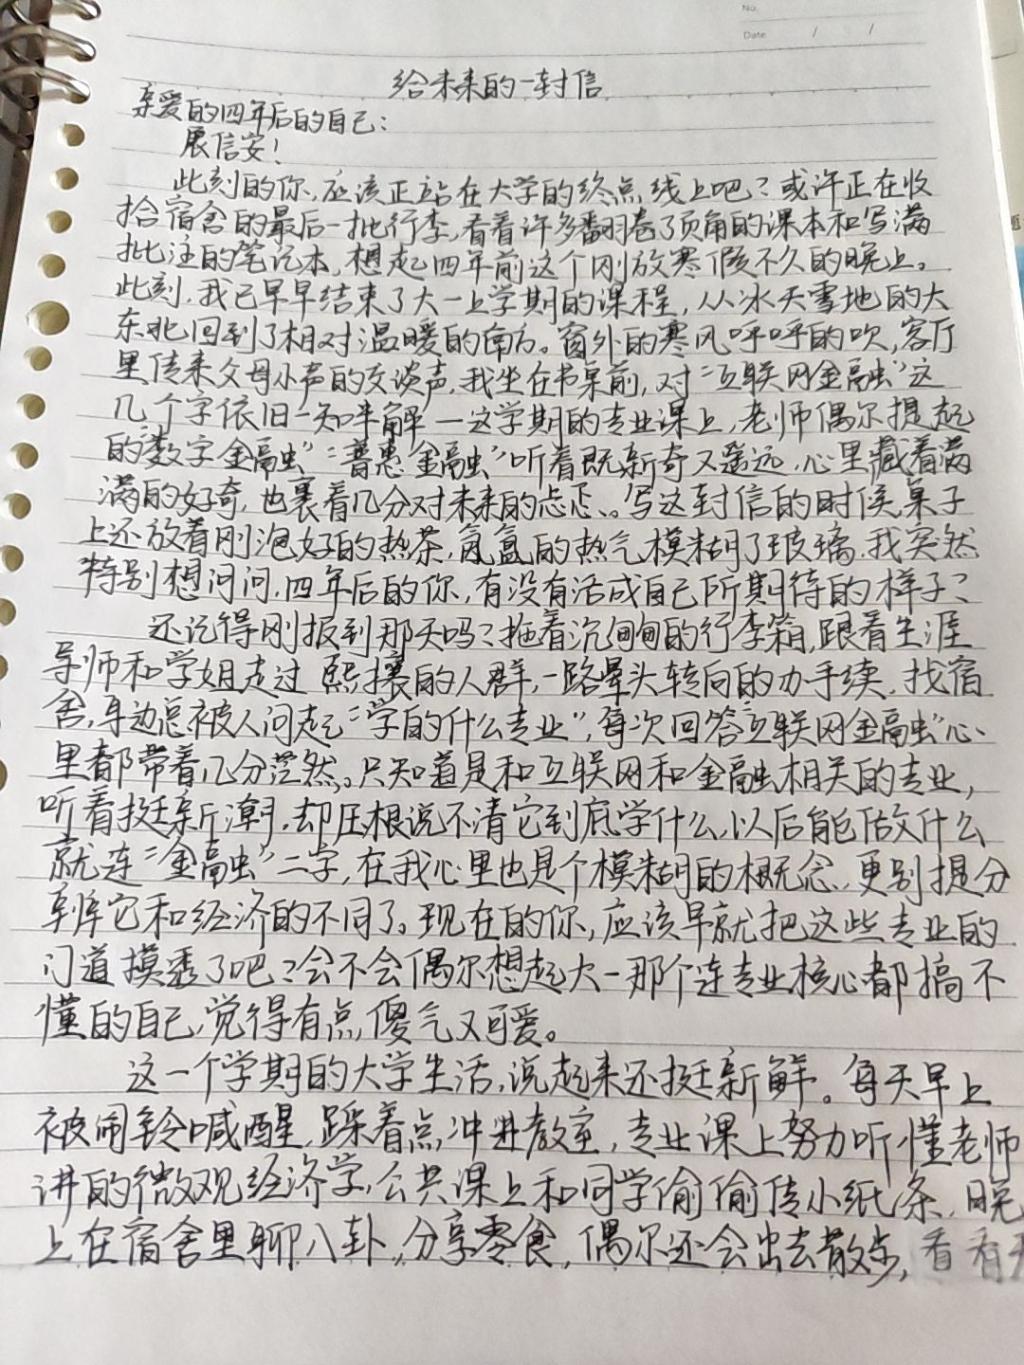 No.
Date / /
给未来的一封信
亲爱的四年后的自己:
展信安!
此刻的你,应该正站在大学的终点线上吧?或许正在收
拾宿舍的最后一批行李,看着许多翻卷了页角的课本和写满
批注的笔记本,想起四年前这个刚放寒假不久的晚上。
此刻,我已早早结束了大一上学期的课程,从冰天雪地的大
东北回到了相对温暖的南方。窗外的寒风呼呼的吹,客厅
里传来父母小声的交谈声,我坐在书桌前,对“互联网金融”这
几个字依旧一知半解—这学期的专业课上,老师偶尔提起
的“数字金融”“普惠金融”听着既新奇又遥远,心里藏着满
满的好奇,也裹着几分对未来的忐忑。写这封信的时候,桌子
上还放着刚泡好的热茶,氤氲的热气模糊了玻璃,我突然
特别想问问,四年后的你,有没有活成自己所期待的样子?
还记得刚报到那天吗?拖着沉甸甸的行李箱,跟着生涯
导师和学姐走过熙攘的人群,一路晕头转向的办手续,找宿
舍,身边总被人问起“学的什么专业”,每次回答“互联网金融”心
里都带着几分茫然。只知道是和互联网和金融相关的专业,
听着挺新潮,却压根说不清它到底学什么,以后能做什么
就连“金融”二字,在我心里也是个模糊的概念,更别提分
辨它和经济的不同了。现在的你,应该早就把这些专业的
门道摸透了吧?会不会偶尔想起大一那个连专业核心都搞不
懂的自己,觉得有点傻气又可爱。
这一个学期的大学生活,说起来还挺新鲜。每天早上
被闹铃喊醒,踩着点冲进教室,专业课上努力听懂老师
讲的微观经济学,公共课上和同学偷偷传小纸条,晚
上在宿舍里聊八卦,分享零食,偶尔还会出去散步,看看